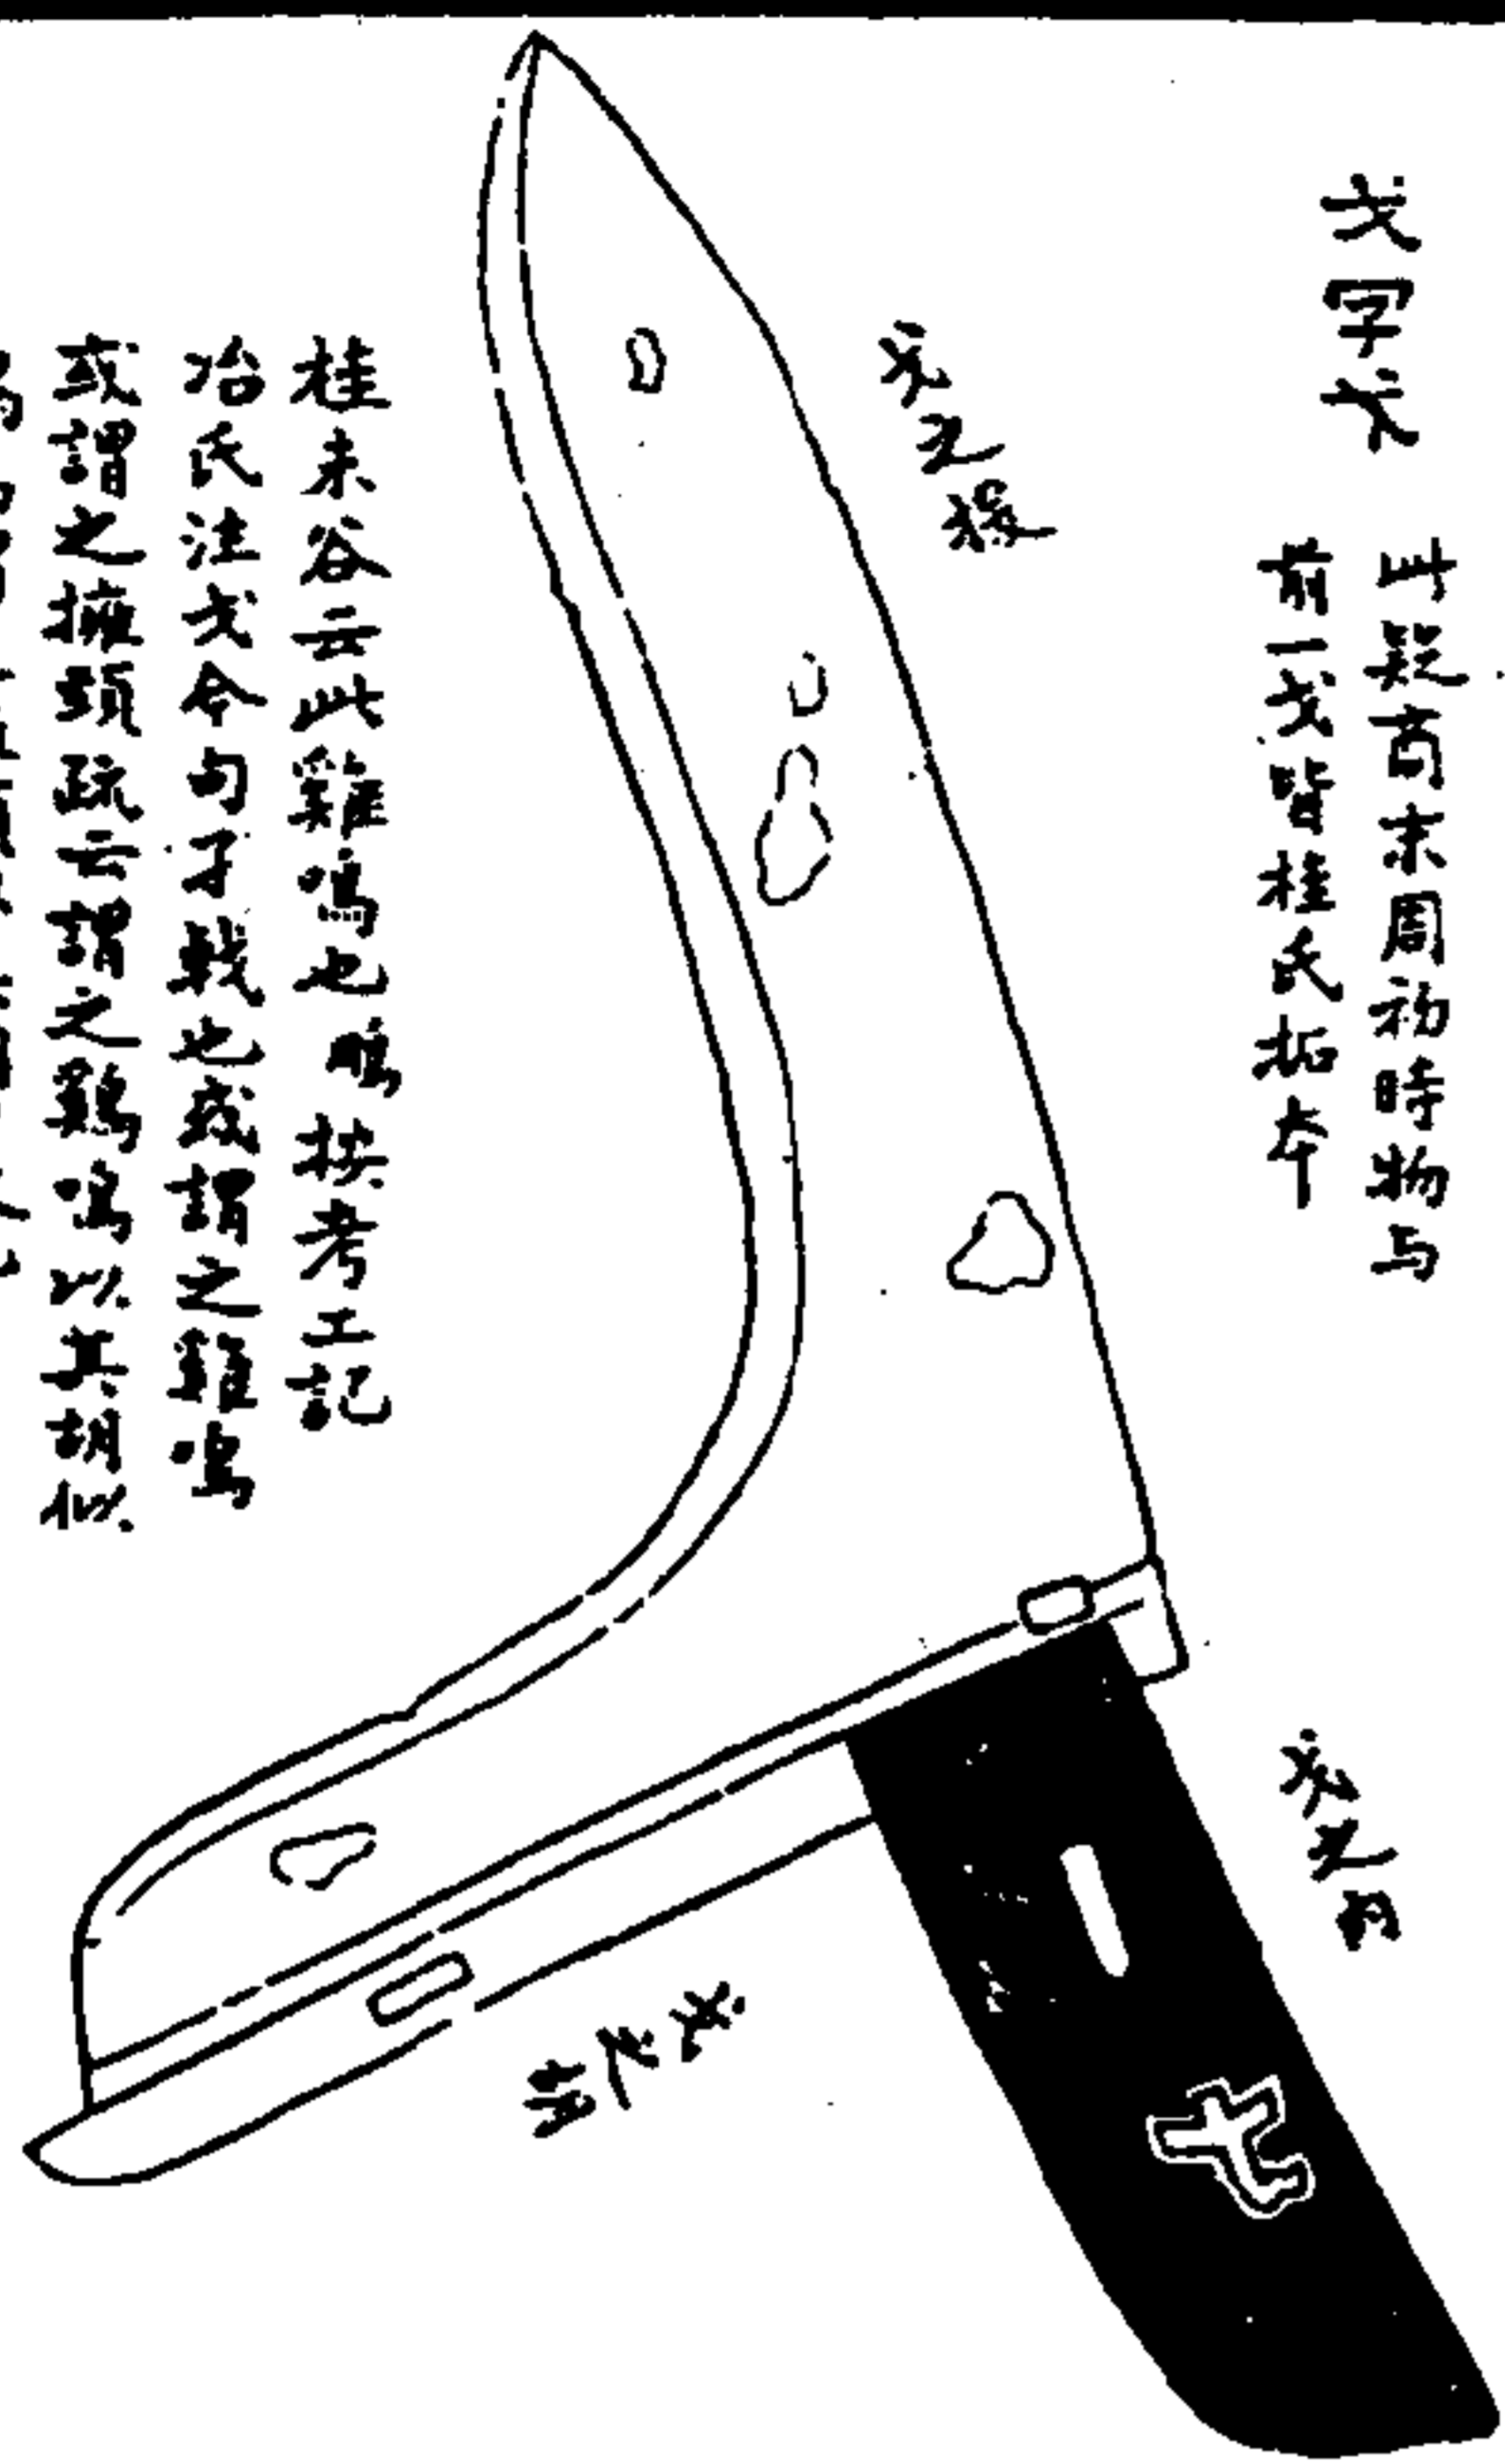 戈字戈
此疑商末周初時物与
前一戈皆桂氏拓本
戈之援
戈之内
戈之胡
桂未谷云此雞鳴也馥按考工記
冶氏注戈今句孑戟也或謂之雞鳴
或謂之擁頸疏云謂之雞鳴以其胡似